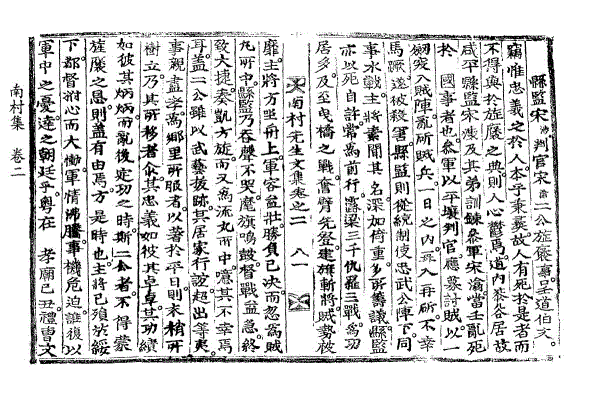 縣監宋判官宋二公旌褒事呈道伯文
竊惟忠義之於人本乎秉彝故人有死於是者而
不得與於旌褒之典則人心鬱焉道內黎谷居故
咸平縣監宋涉及其弟訓練參軍宋當壬亂死
於 國事者也參軍以平壤判官應募討賊以一
劒突入賊陣亂斫賊兵一日之內再入再斫不幸
馬蹶遂被殺害縣監則從統制使忠武公陣下同
事水戰主將素聞其名深加倚重多所籌議縣監
亦以死自許常爲首行露梁三千仇羅三戰爲功
居多及至曳橋之戰奮臂先登建旗斬將賊勢被
南村先生文集卷之二 八一
靡主將方坐舟上軍容益壯勝負已決而忽爲賊
丸所中縣監乃吞聲不哭麾旗鳴鼓督戰益急終
致大捷奏凱方旋而又爲流丸所中噫其不幸焉
耳盖二公雖以武藝拔跡其居家行誼超出等夷
事親盡孝爲鄕里所服者以著於平日則表稍所
樹立乃其所移者其忠義如彼其卓卓其功績
如彼其炳炳而亂後定功之時斯二公者不得蒙
旌褒之恩則盖有由焉方是時也主將已殞於綏
下都督拊心而大慟軍情沸騰事機危迫誰復以
軍中之憂達之朝廷乎粤在 孝廟己丑禮曹文
南村集 卷二